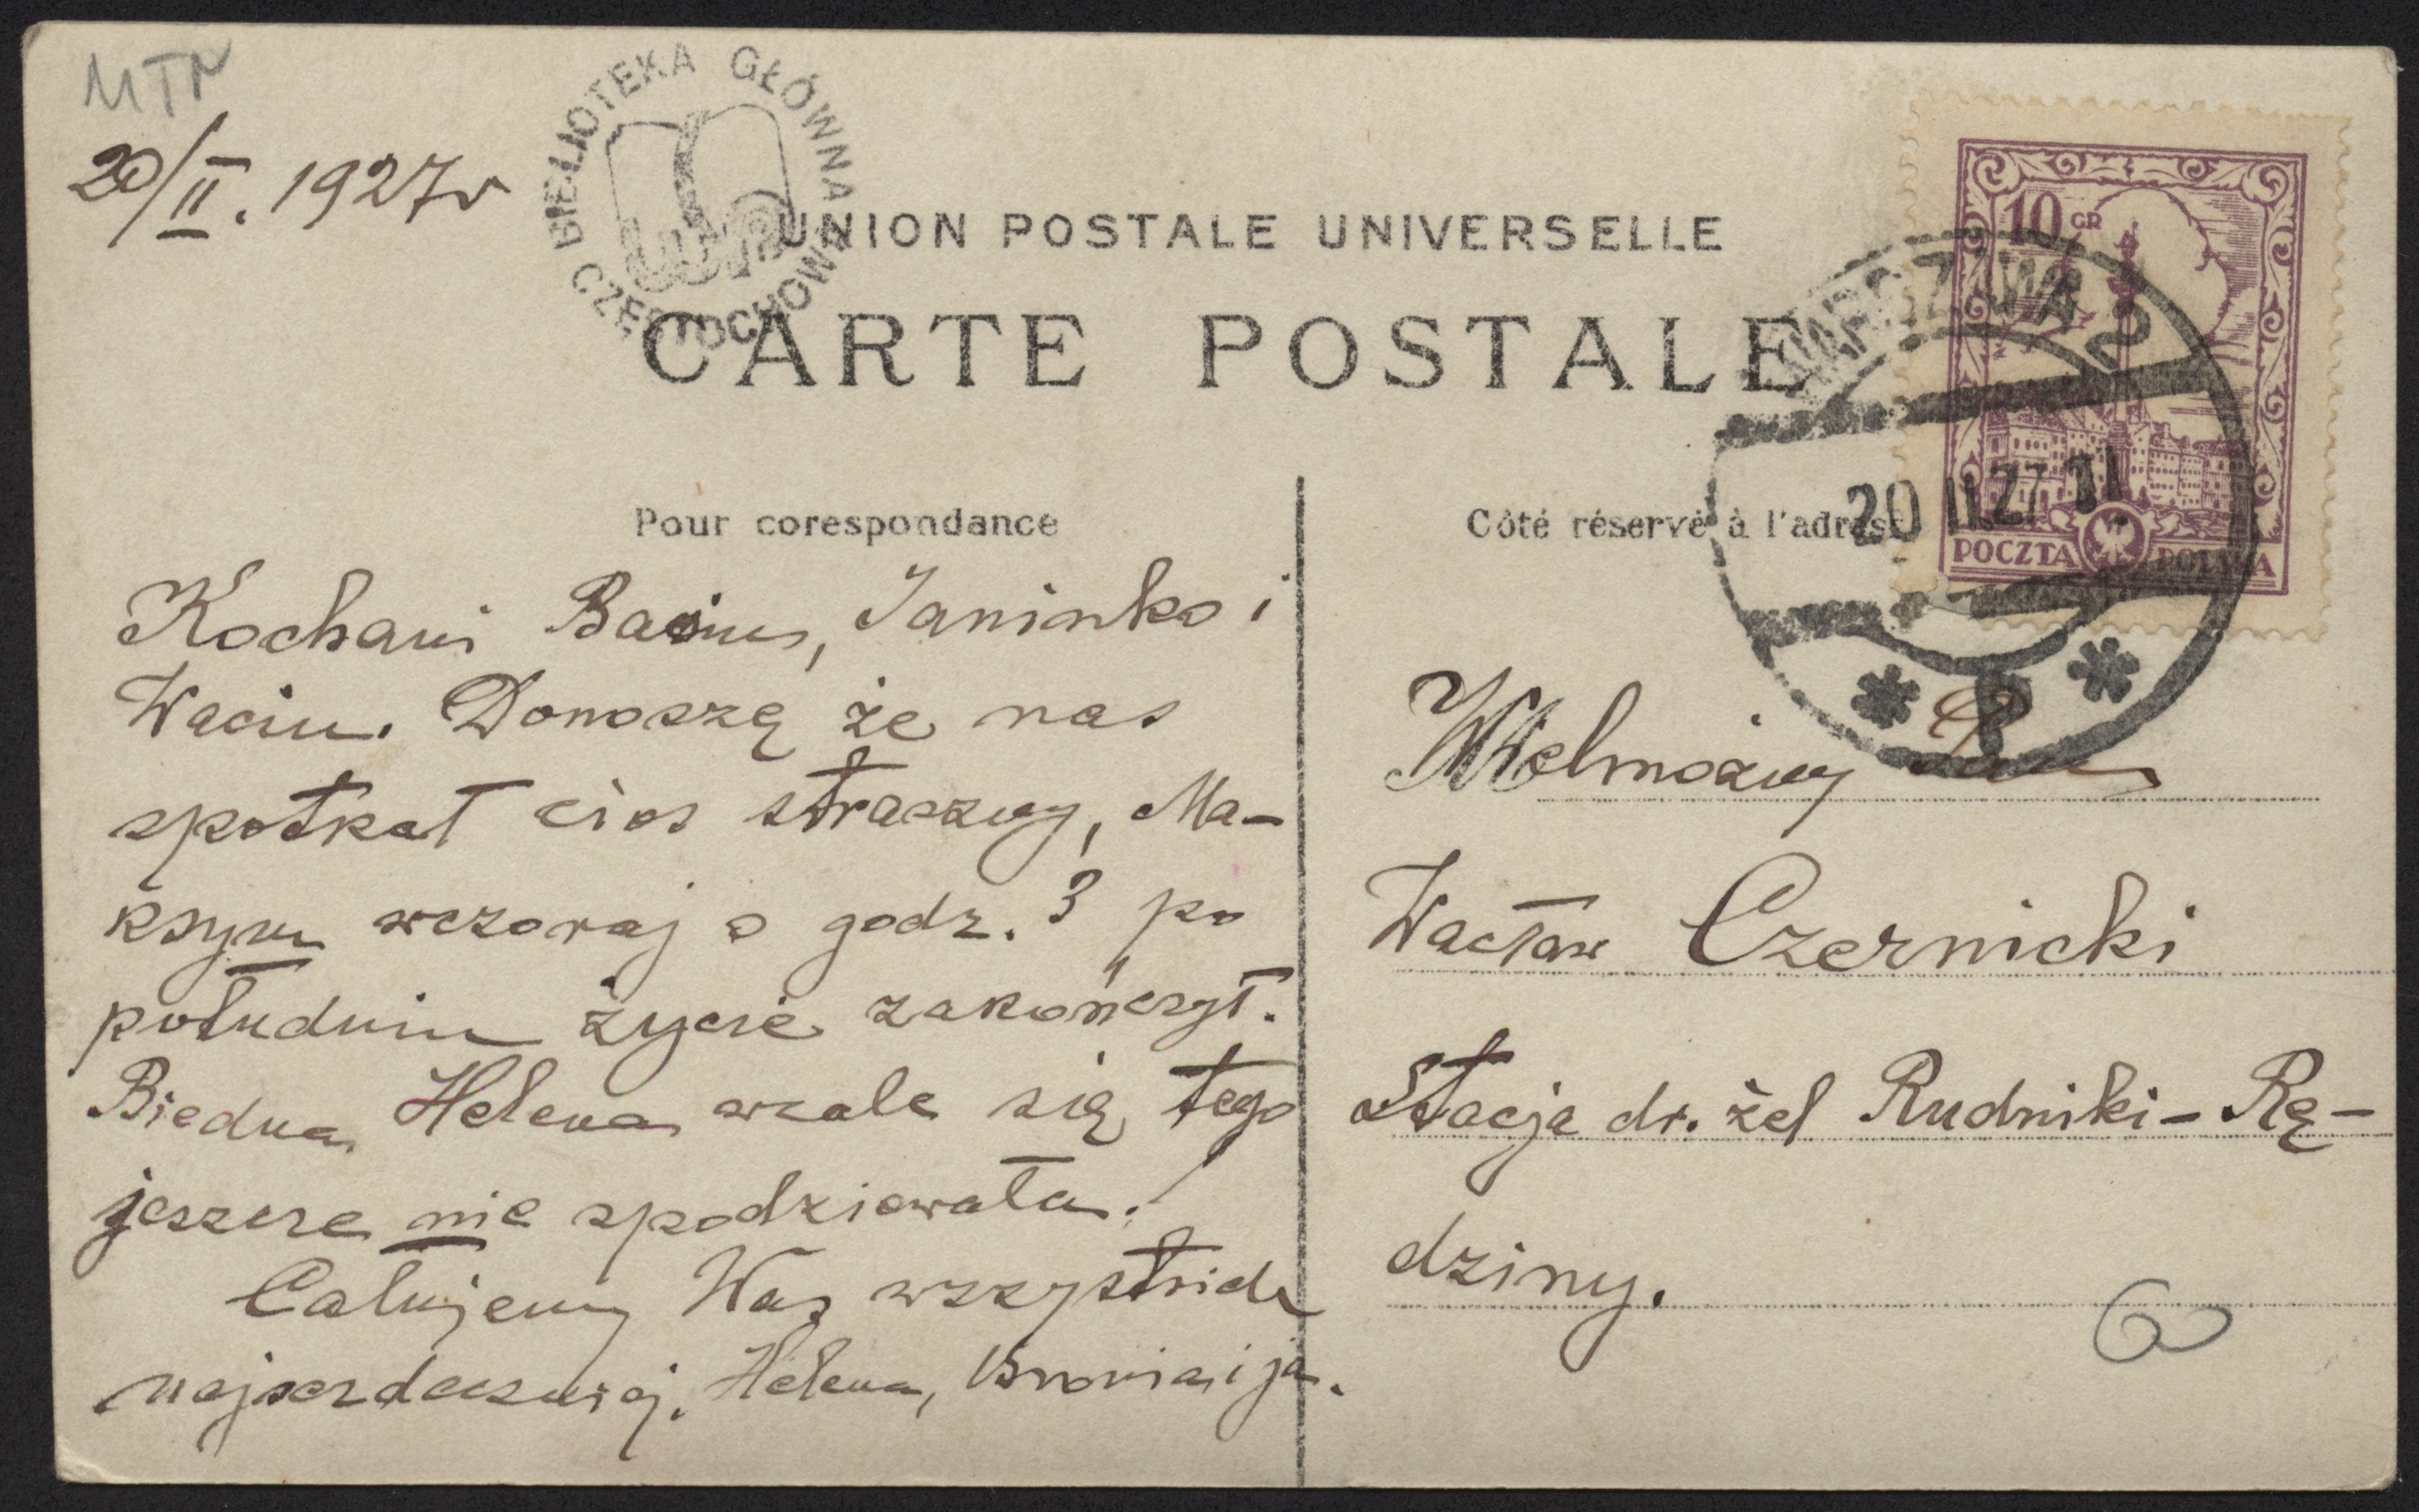 MTN
20/II. 1927 r
BIBLIOTEKA GŁÓWNA
WSP
CZĘSTOCHOWA
UNION POSTALE UNIVERSELLE
CARTE POSTALE
10 GR
POCZTA POLSKA
WARSZAWA 2
20 II 27 11
Pour corespondance
Kochani Janinko i
Waciu. Donoszę że nas
spotkał cios straszny, Ma-
ksym wczoraj o godz. 3 po
południu życie zakończył.
Biedna Helena wcale się tego
jeszcze nie spodziewała!
Całujemy Was wszystkich
najserdeczniej. Helena, Bronia i ja.
Côté réservé à l'adresse
Wielmożny Pan
Wacław Czernicki
Stacja dr. żel Rudniki-Rę-
dziny.
6